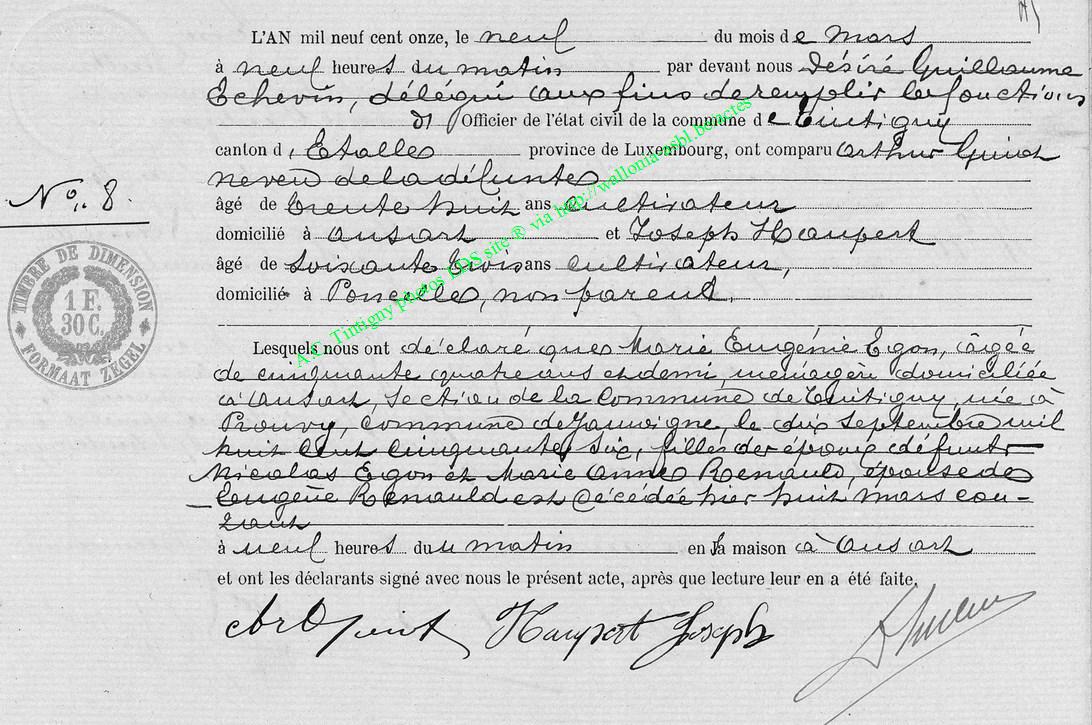 L'AN mil neuf cent onze, le neuf du mois de mars
à neuf heures du matin par devant nous Désiré Guillaume
Echevin, délégué aux fins de remplir les fonctions
d' Officier de l'état civil de la commune de Tintigny
canton d'Etalle province de Luxembourg, ont comparu Arthur
neveu de la défunte
âgé de trente huit ans cultivateur
N° 8.
domicilié à Ansart et Joseph Haupert
âgé de soixante trois ans cultivateur,
domicilié à Poncelle, non parent.
TIMBRE DE DIMENSION
1 F.
30 C.
FORMAAT ZEGEL
A.C. Tintigny photos LDS site ® via http://wallonia-asbl.be/actes
Lesquels nous ont déclaré que Marie Eugénie Egon, âgée
de cinquante quatre ans et demi, ménagère domiciliée
à Ansart, section de la commune de Tintigny, née à
Prouvy, commune de Jamoigne, le dix septembre mil
huit cent cinquante six, fille des époux défunts
Nicolas Egon et Marie Anne Renauld, épouse de
Eugène Renauld est décédée hier huit mars cou-
rant
à neuf heures du matin en sa maison à Ansart
et ont les déclarants signé avec nous le présent acte, après que lecture leur en a été faite.
Haupert Joseph